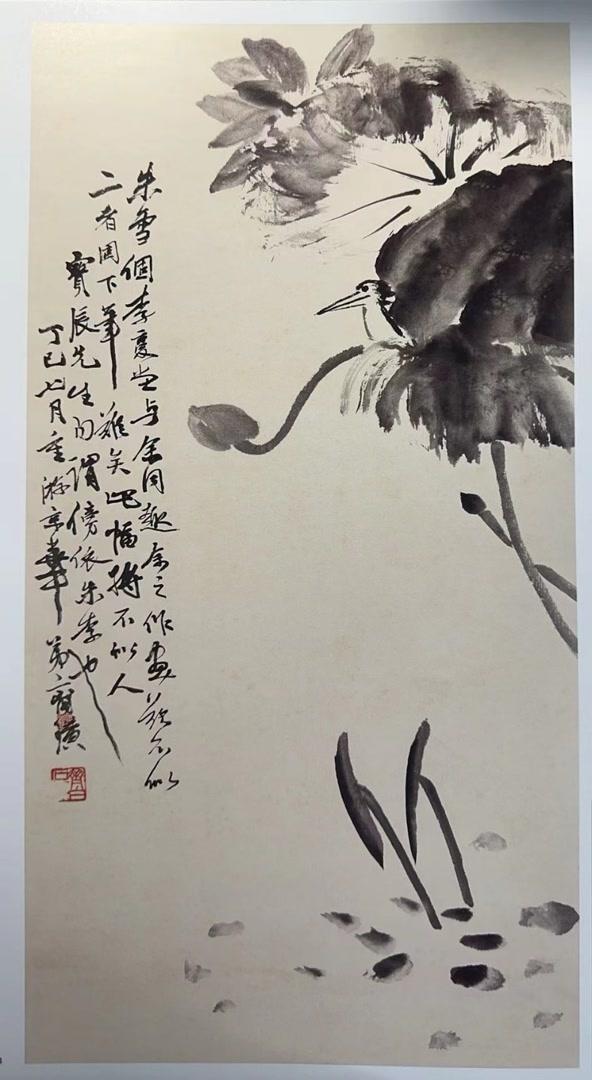 朱雪個李复堂与余同趣余之作画欲不似
二者下筆難矣此幅不似人
寶辰先生勿謂傍依朱李也
丁巳七月重游京華弟齊璜
齊白石